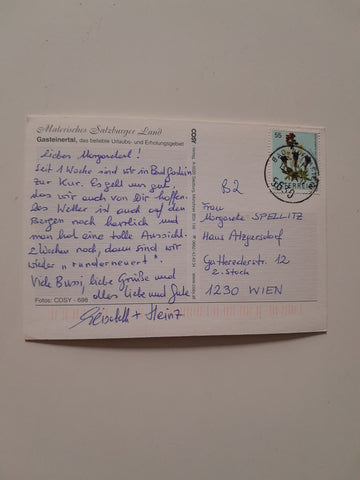 Malerisches Salzburger Land
Gasteinertal, das beliebte Urlaubs- und Erholungsgebiet
Liebes Margaretherl!
Seit 1 Woche sind wir in Bad Gastein
zur Kur. Es geht uns gut,
das wir auch von Dir hoffen.
Das Wetter ist auch auf den
Bergen noch herrlich und
man hat eine tolle Aussicht.
2 Wochen noch, dann sind wir
wieder "runderneuert".
Viele Bussi, liebe Grüße und
alles Liebe und Gute
+ Heinz
Fotos: COSY - 698
COSY
55
ÖSTERREICH
5630
B2
Frau
Margarete SPELLITZ
Haus Atzgersdorf
Gatterederstr. 12
2. Stock
1230 WIEN